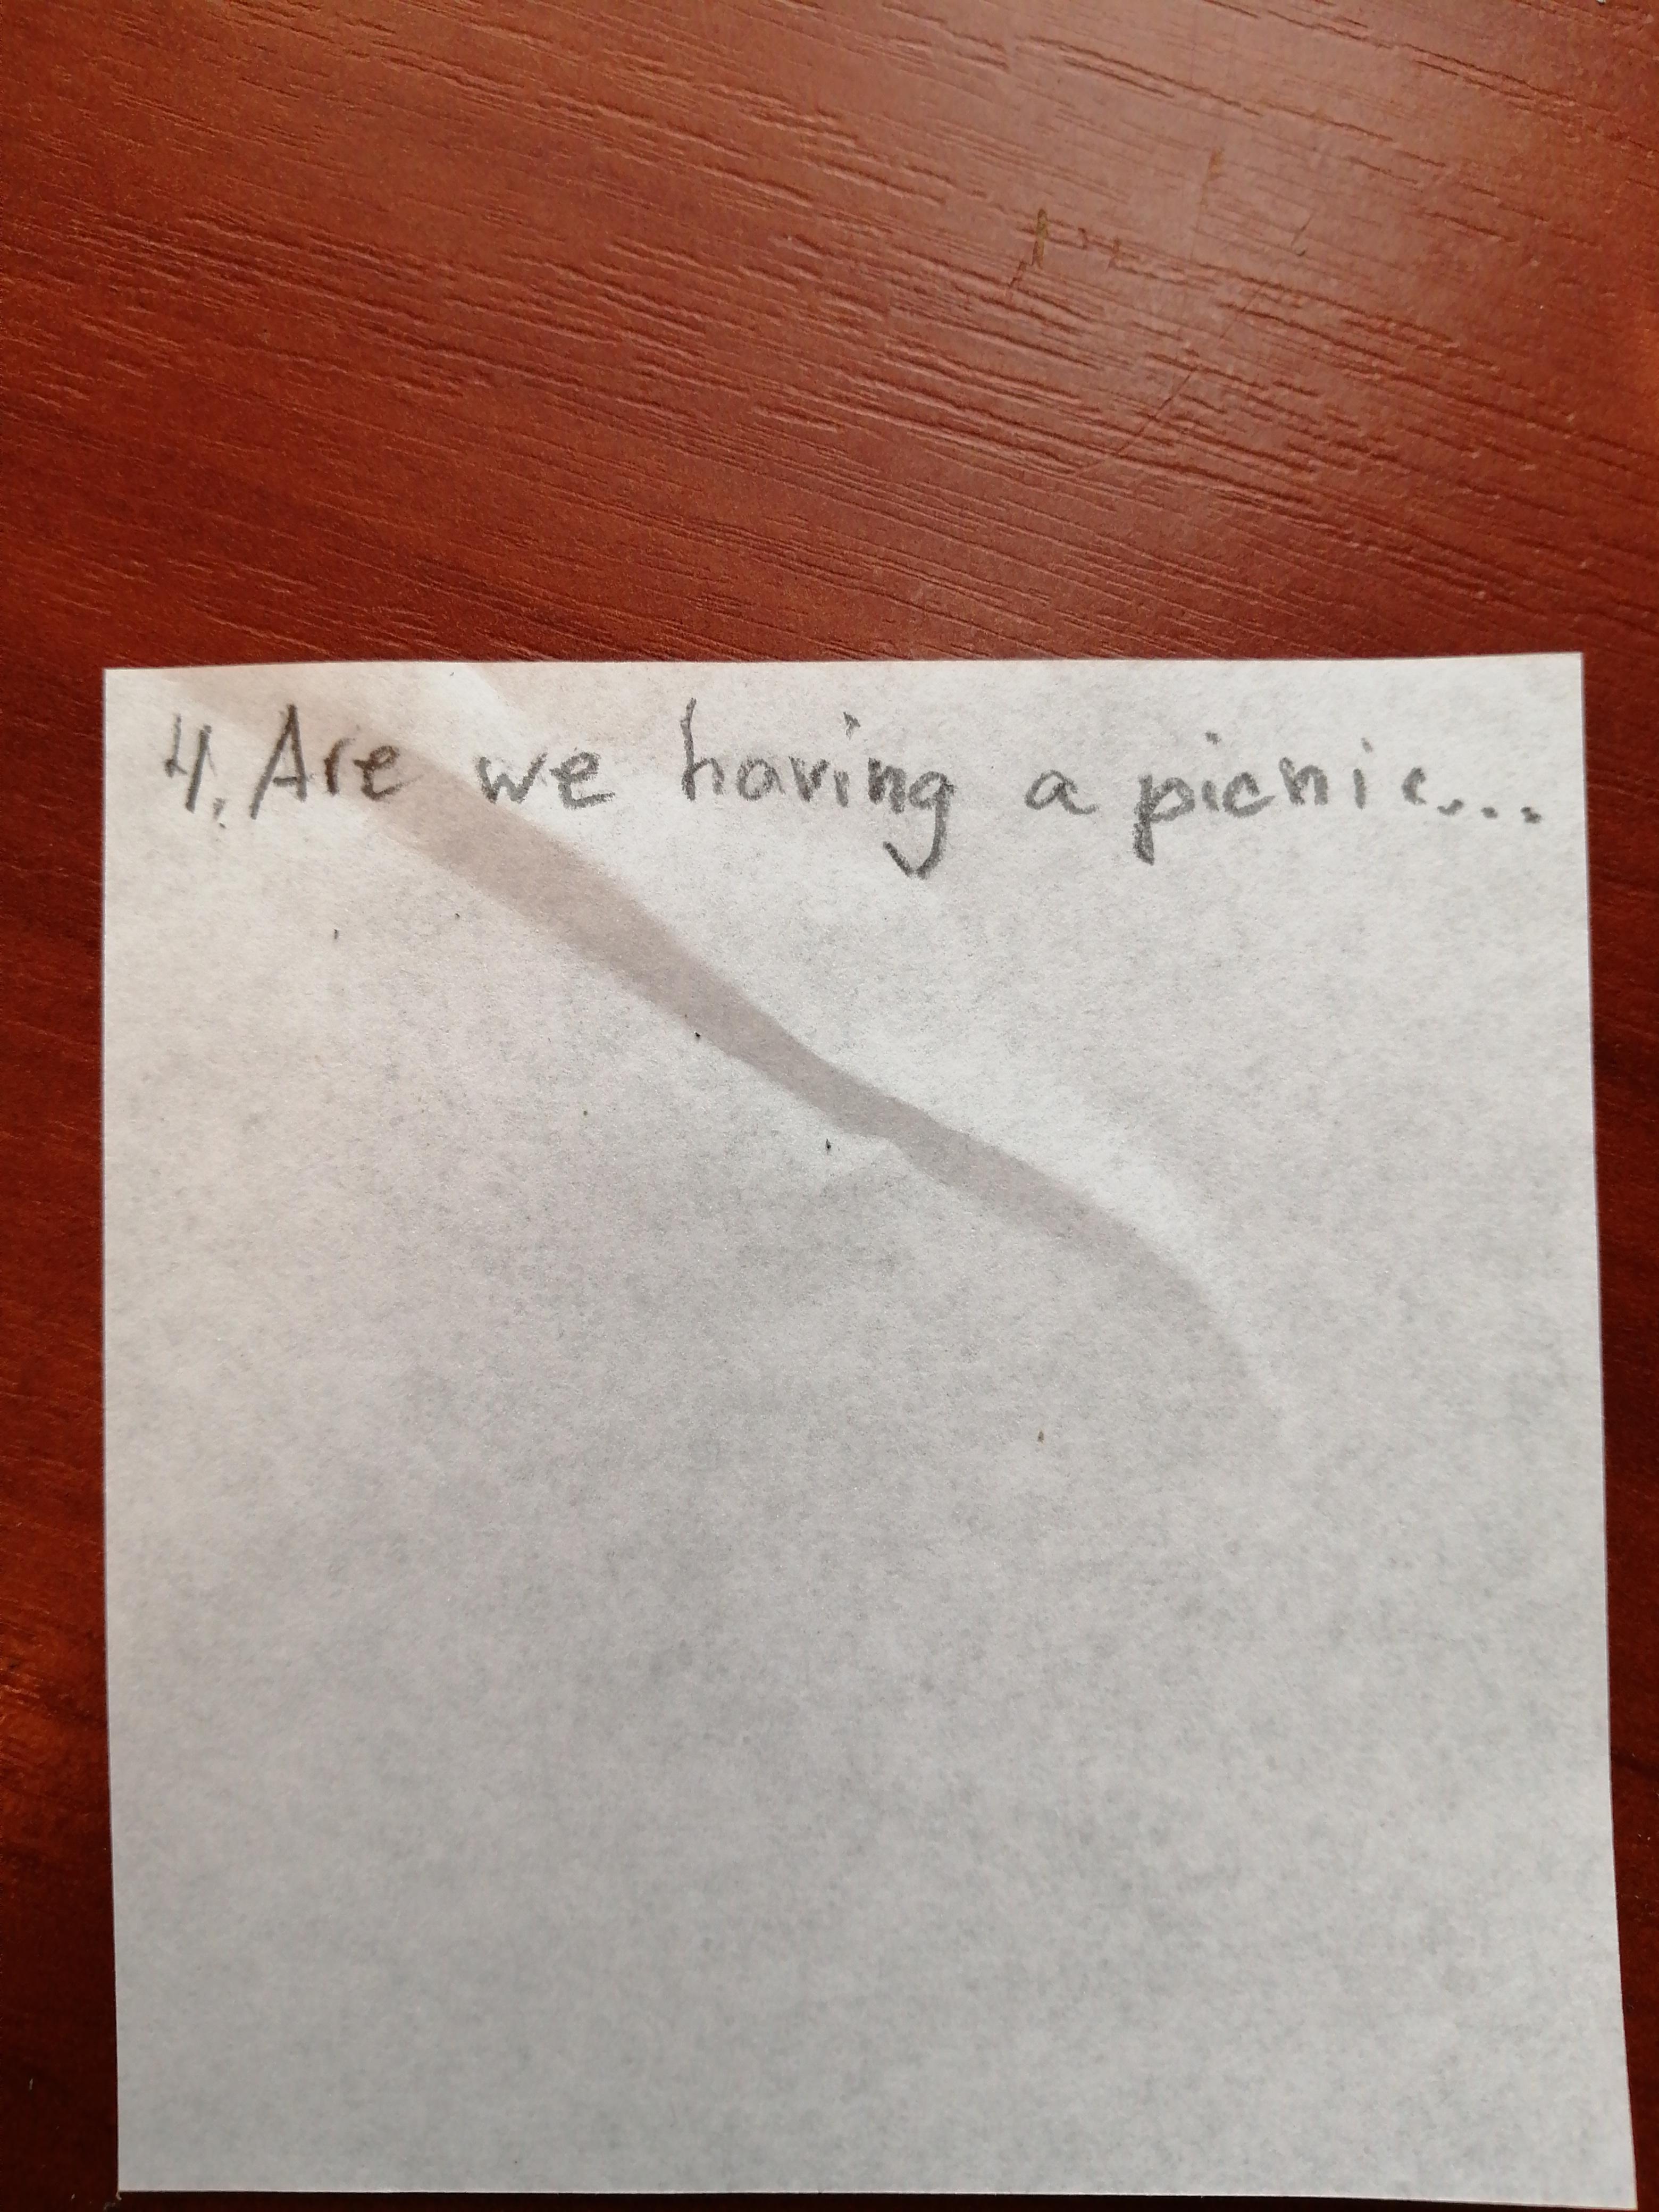 4. Are we having a picnic...